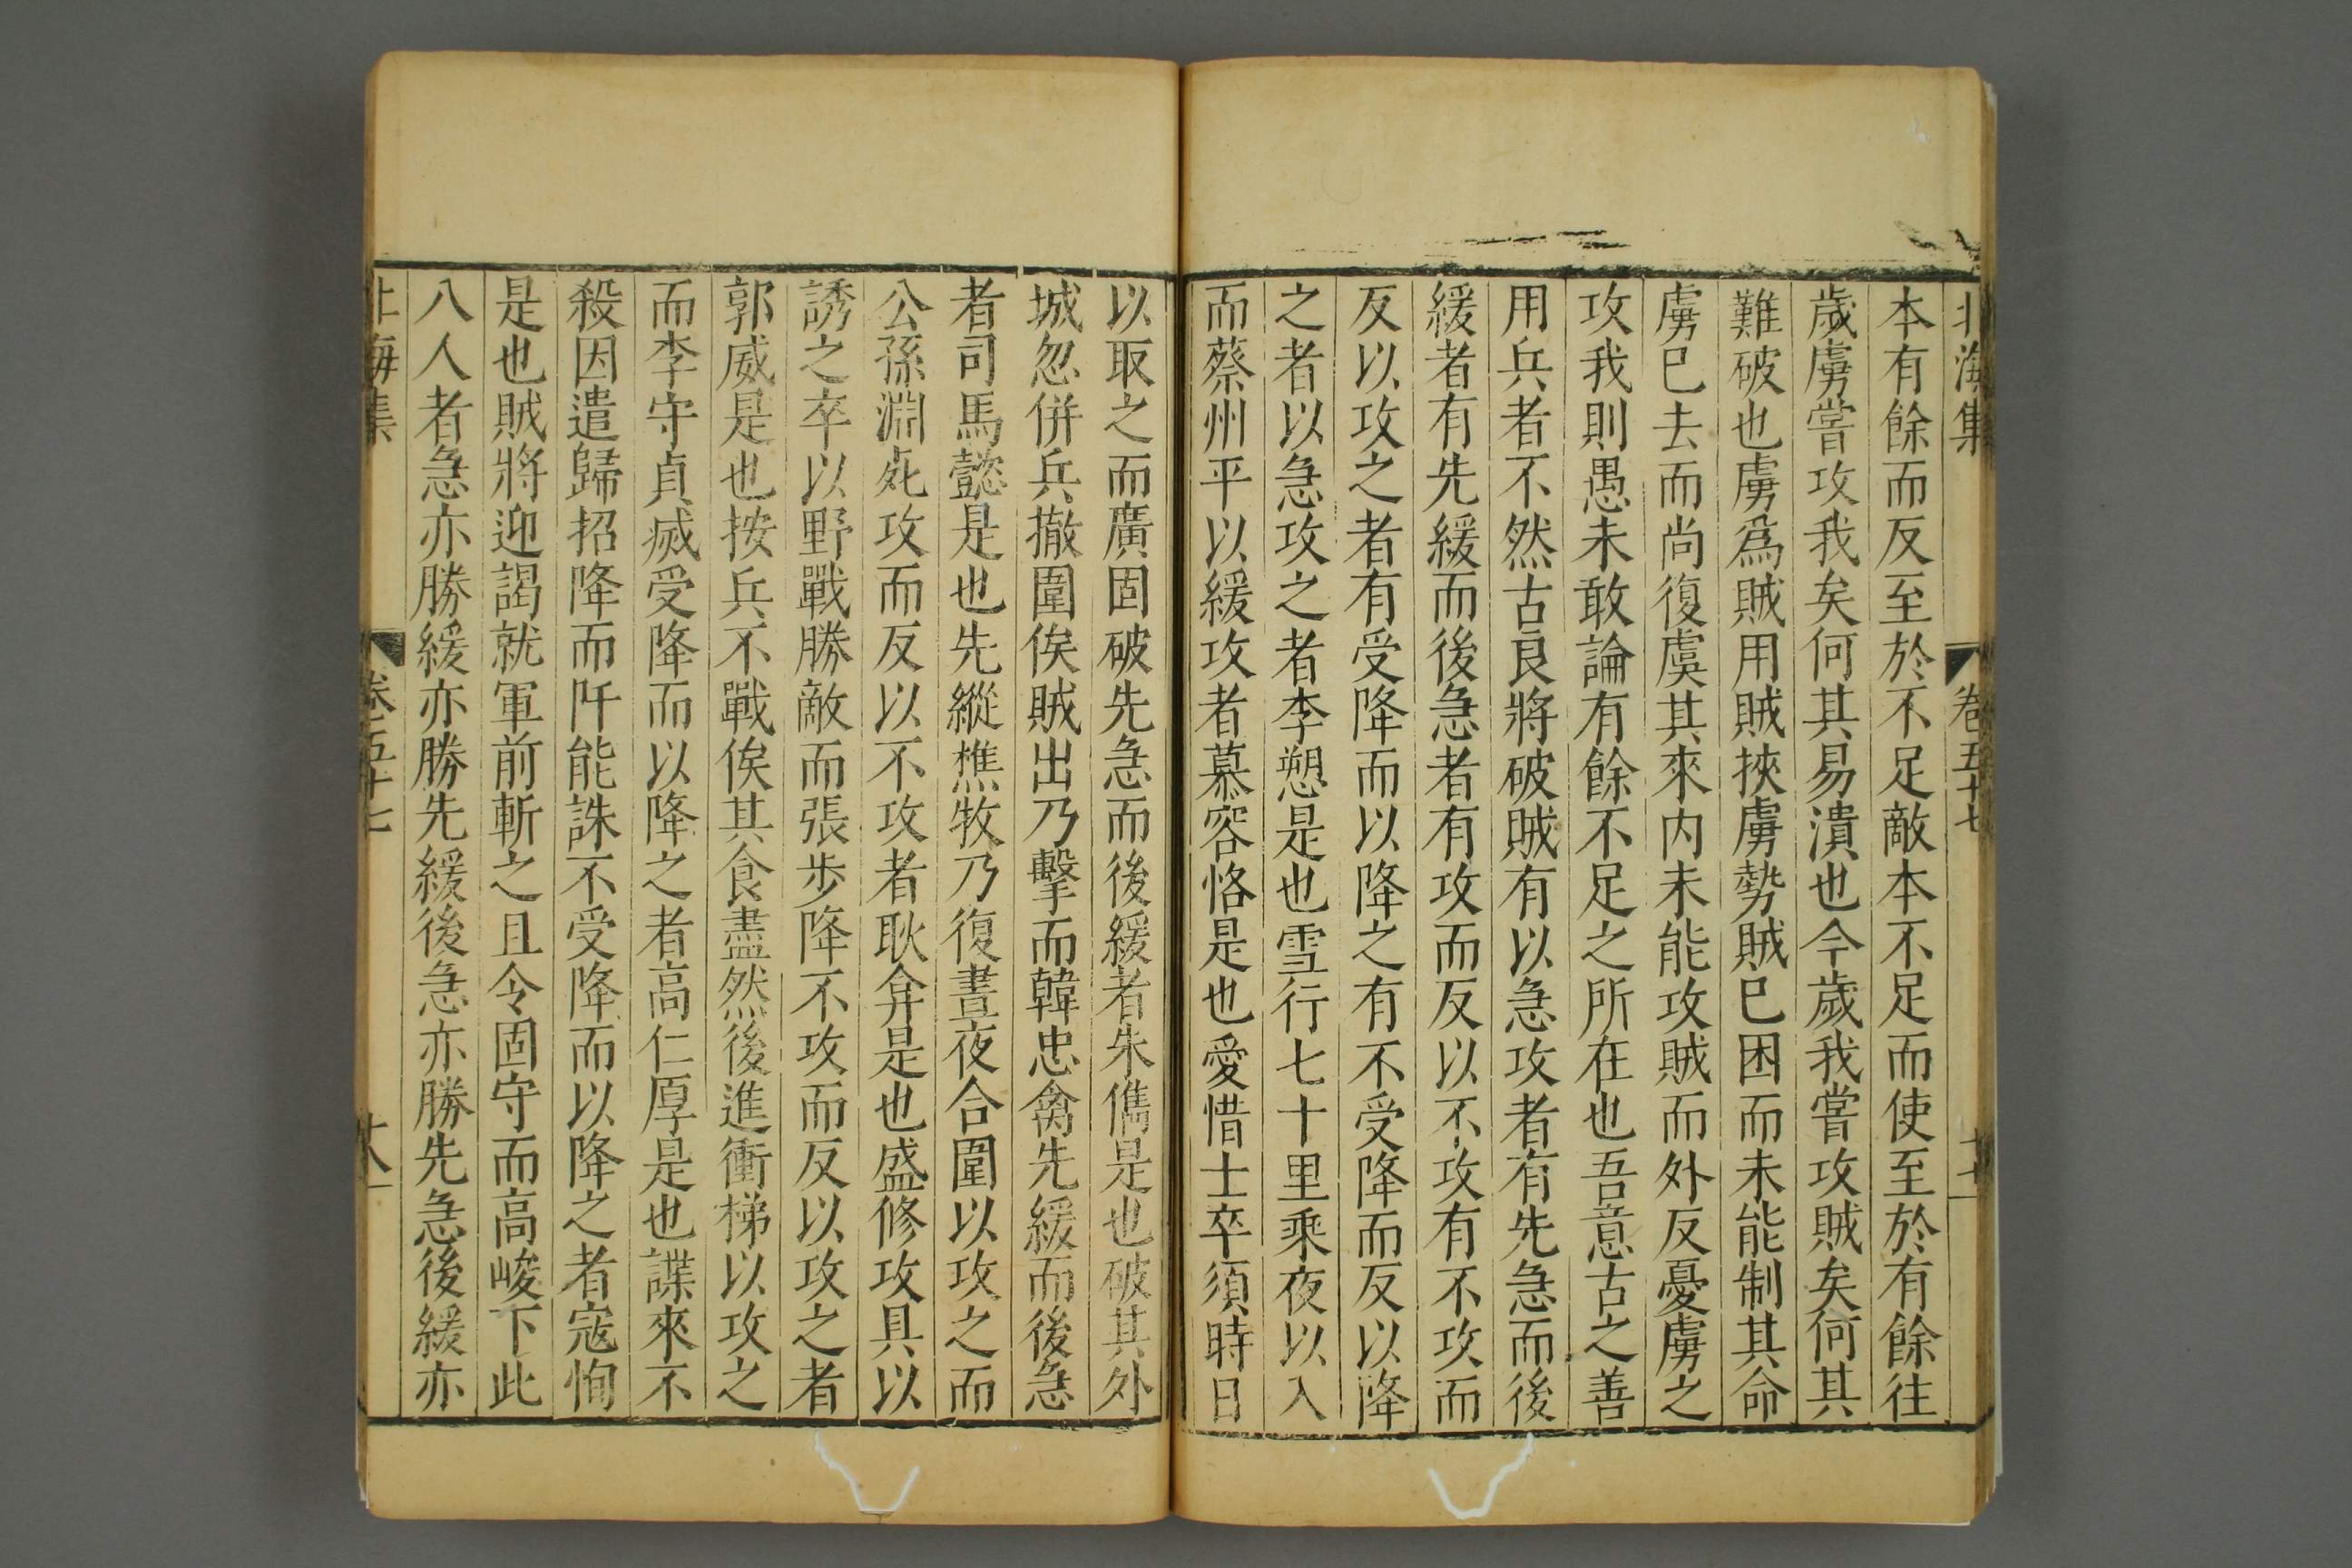 北海集 卷五十七 十七
本有餘而反至於不足敵本不足而使至於有餘往
歲虜嘗攻我矣何其易潰也今歲我嘗攻賊矣何其
難破也虜爲賊用賊挾虜勢賊已困而未能制其命
虜已去而尚復虞其來内未能攻賊而外反憂虜之
攻我則愚未敢論有餘不足之所在也吾意古之善
用兵者不然古良將破賊有以急攻者有先急而後
緩者有先緩而後急者有攻而反以不攻有不攻而
反以攻之者有受降而以降之有不受降而反以降
之者以急攻之者李愬是也雪行七十里乘夜以入
而蔡州平以緩攻者慕容恪是也愛惜士卒須時日
以取之而廣固破先急而後緩者朱儁是也破其外
城忽併兵撤圍俟賊出乃擊而韓忠禽先緩而後急
者司馬懿是也先縱樵牧乃復晝夜合圍以攻之而
公孫淵死攻而反以不攻者耿弇是也盛修攻具以
誘之卒以野戰勝敵而張步降不攻而反以攻之者
郭威是也按兵不戰俟其食盡然後進衝梯以攻之
而李守貞滅受降而以降之者高仁厚是也諜來不
殺因遣歸招降而阡能誅不受降而以降之者寇恂
是也賊將迎謁就軍前斬之且令固守而高峻下此
八人者急亦勝緩亦勝先緩後急亦勝先急後緩亦
北海集 卷五十七 十八